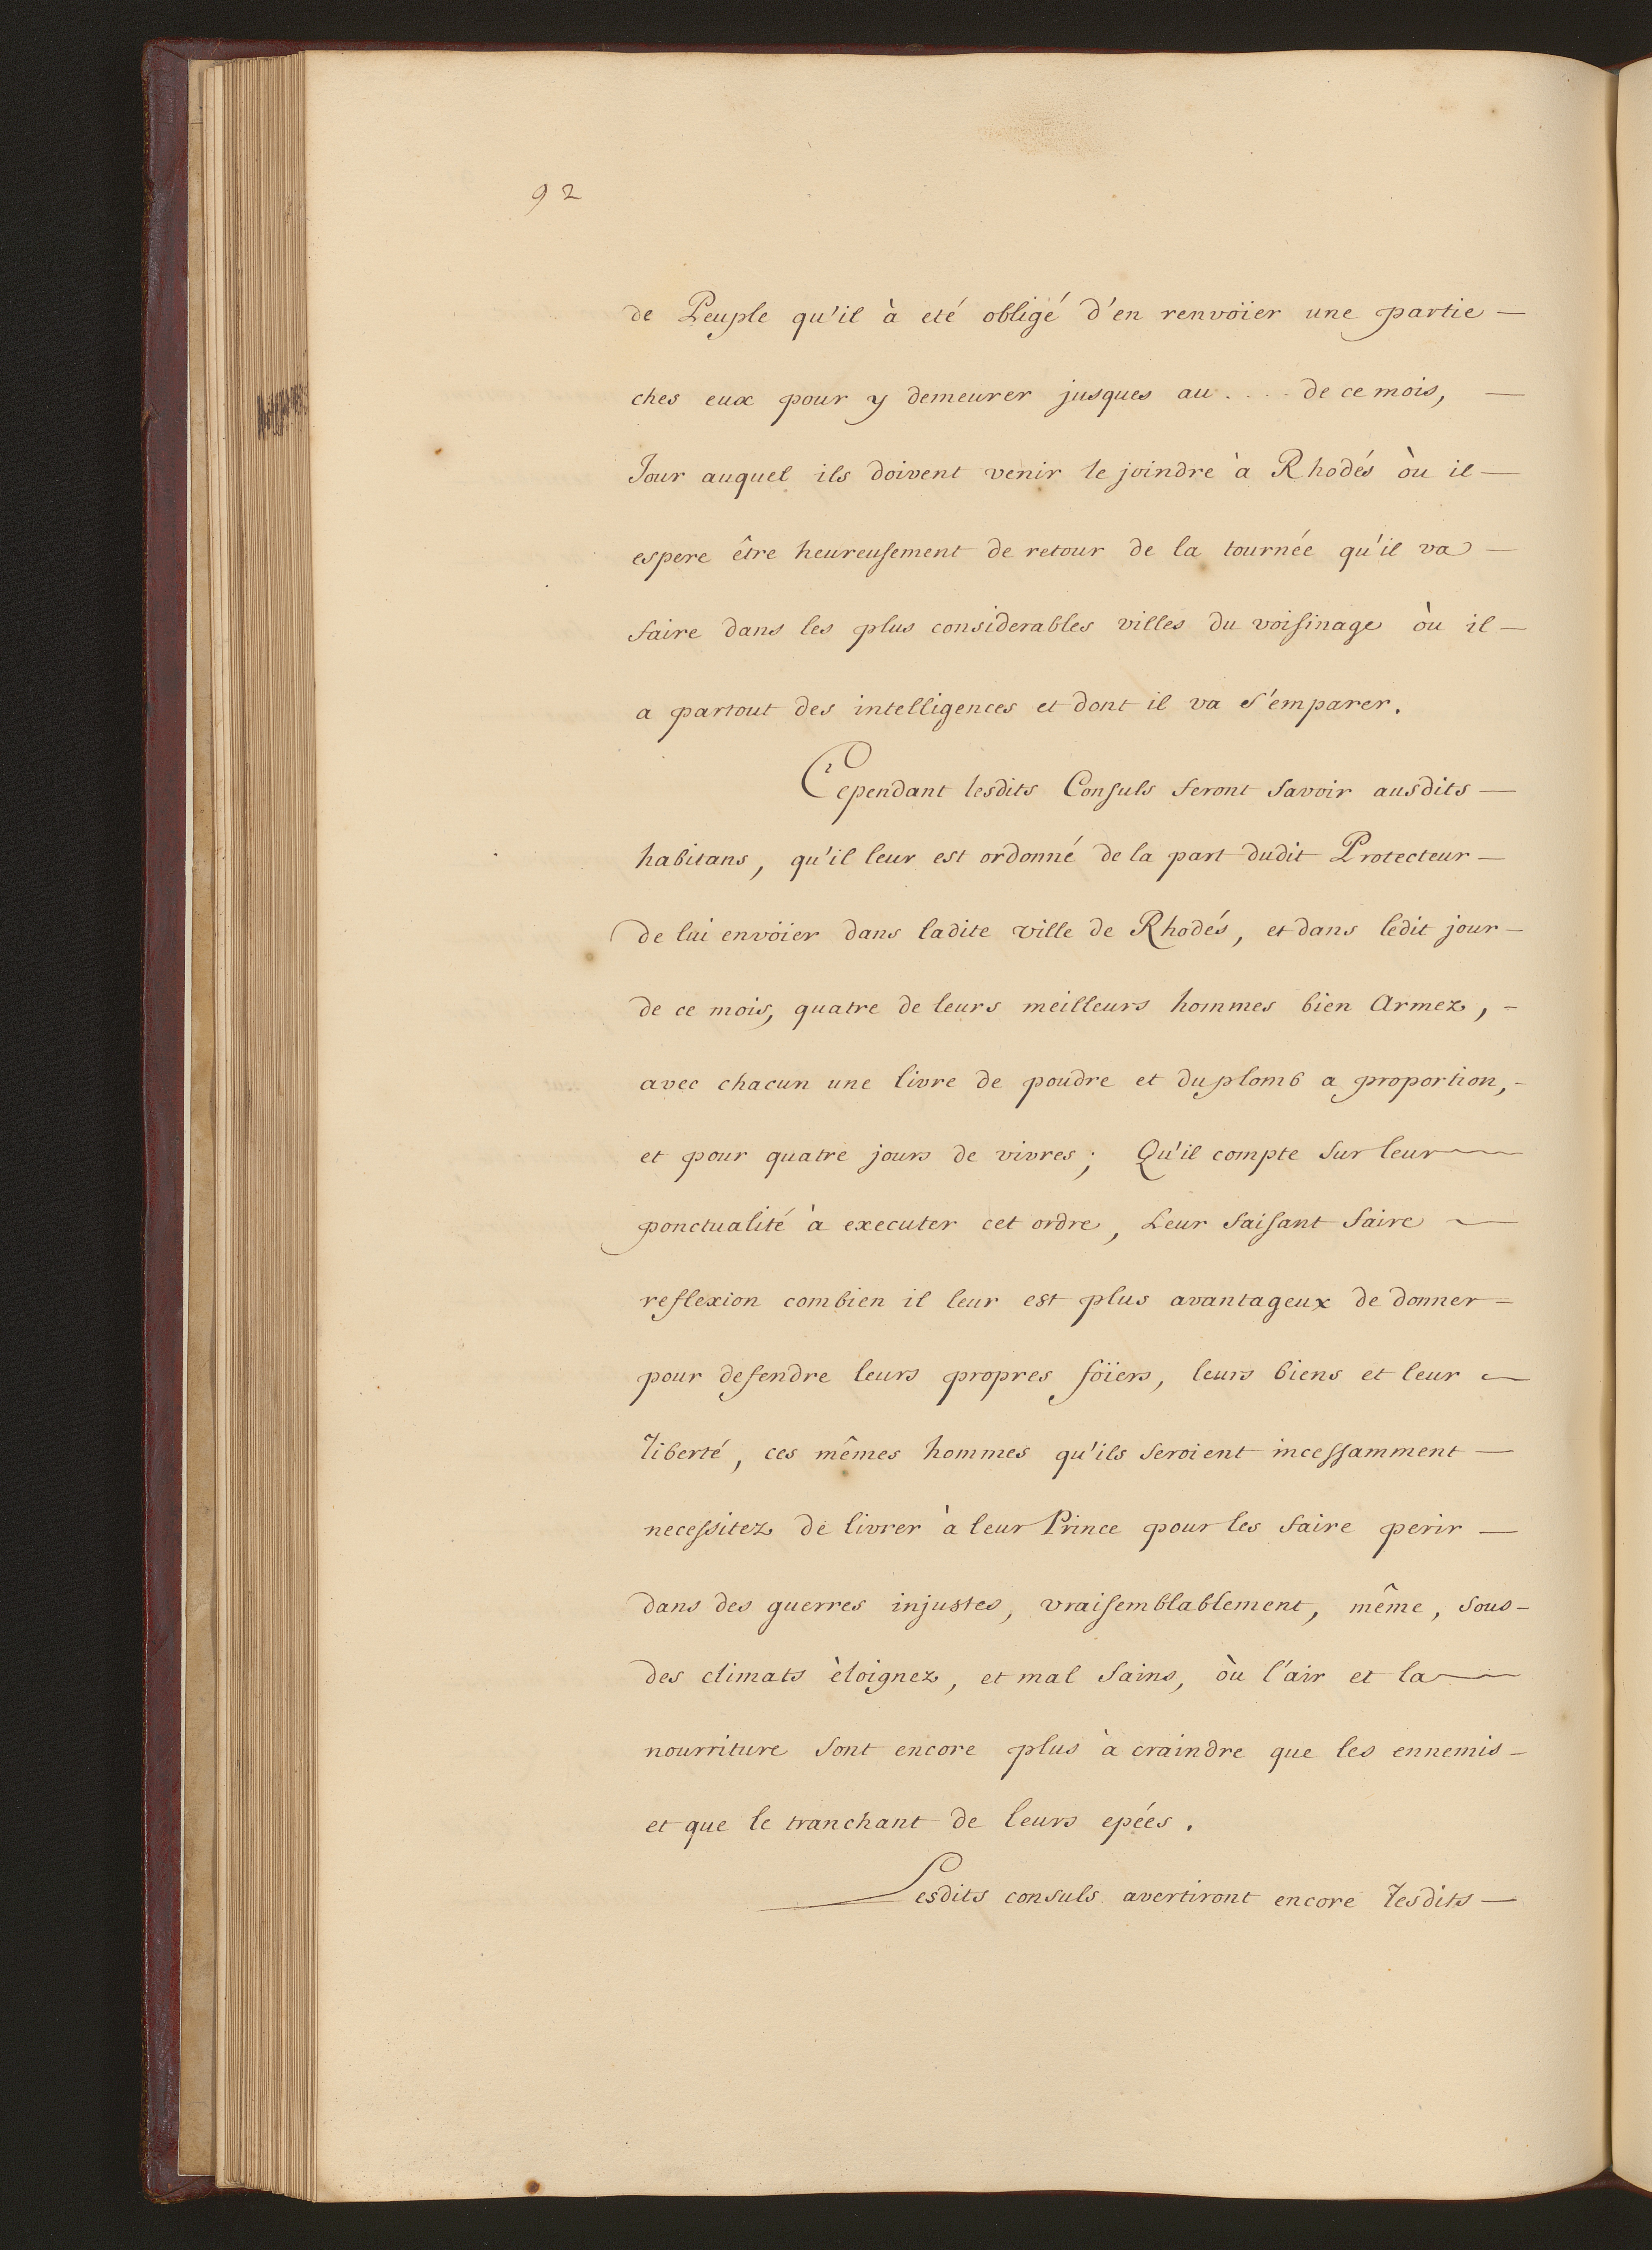 92
de Peuple qu'il à eté obligé d'en renvoïer une partie —
ches eux pour y demeurer jusques au .... de ce mois, —
Jour auquel ils doivent venir le joindre à Rhodés òu il —
espere être heureusement de retour de la tournée qu'il va —
faire dans les plus considerables villes du voisinage òu il —
a partout des intelligences et dont il va s'emparer.
Cependant lesdits Consuls feront savoir ausdits —
habitans, qu'il leur est ordonné de la part dudit Protecteur —
de lui envöier dans ladite ville de Rhodés, et dans ledit jour —
de ce mois, quatre de leurs meilleurs hommes bien Armez, -
avec chacun une livre de poudre et du plomb a proportion, -
et pour quatre jours de vivres; Qu'il compte sur leur —
ponctualité à executer cet ordre, Leur faisant faire —
reflexion combien il leur est plus avantageux de donner —
pour defendre leurs propres föiers, leurs biens et leur —
liberté, ces mêmes hommes qu'ils seroient incessamment —
necessitez de livrer à leur Prince pour les faire perir —
dans des guerres injustes, vraisemblablement, même, sous -
des climats èloignez, et mal sains, òu l'air et la —
nourriture sont encore plus à craindre que les ennemis —
et que le tranchant de leurs epées.
Lesdits consuls avertiront encore lesdits —